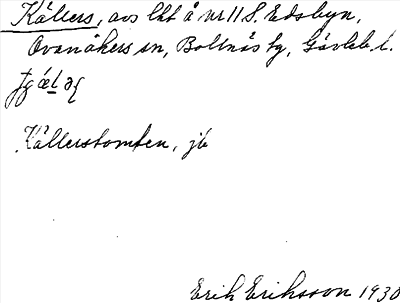 Källers, avs lht å nr 11 S. Edsbyn,
Ovanåkers sn, Bollnäs tg, Gävleb. l.
Källerstomten, jb
Erik Eriksson 1930